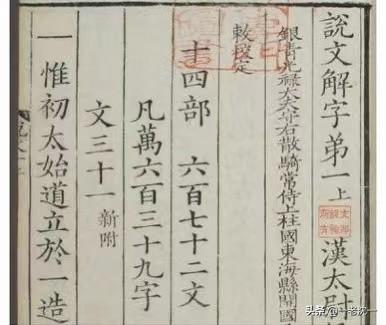 說文解字弟一上 漢太尉
銀青光祿大夫守右散騎常侍上柱國東海縣開國
敕校定
十四部 六百七十二文
凡萬六百三十九字
文三十一 新附
一 惟初太始道立於一造
头条 @一老沈一